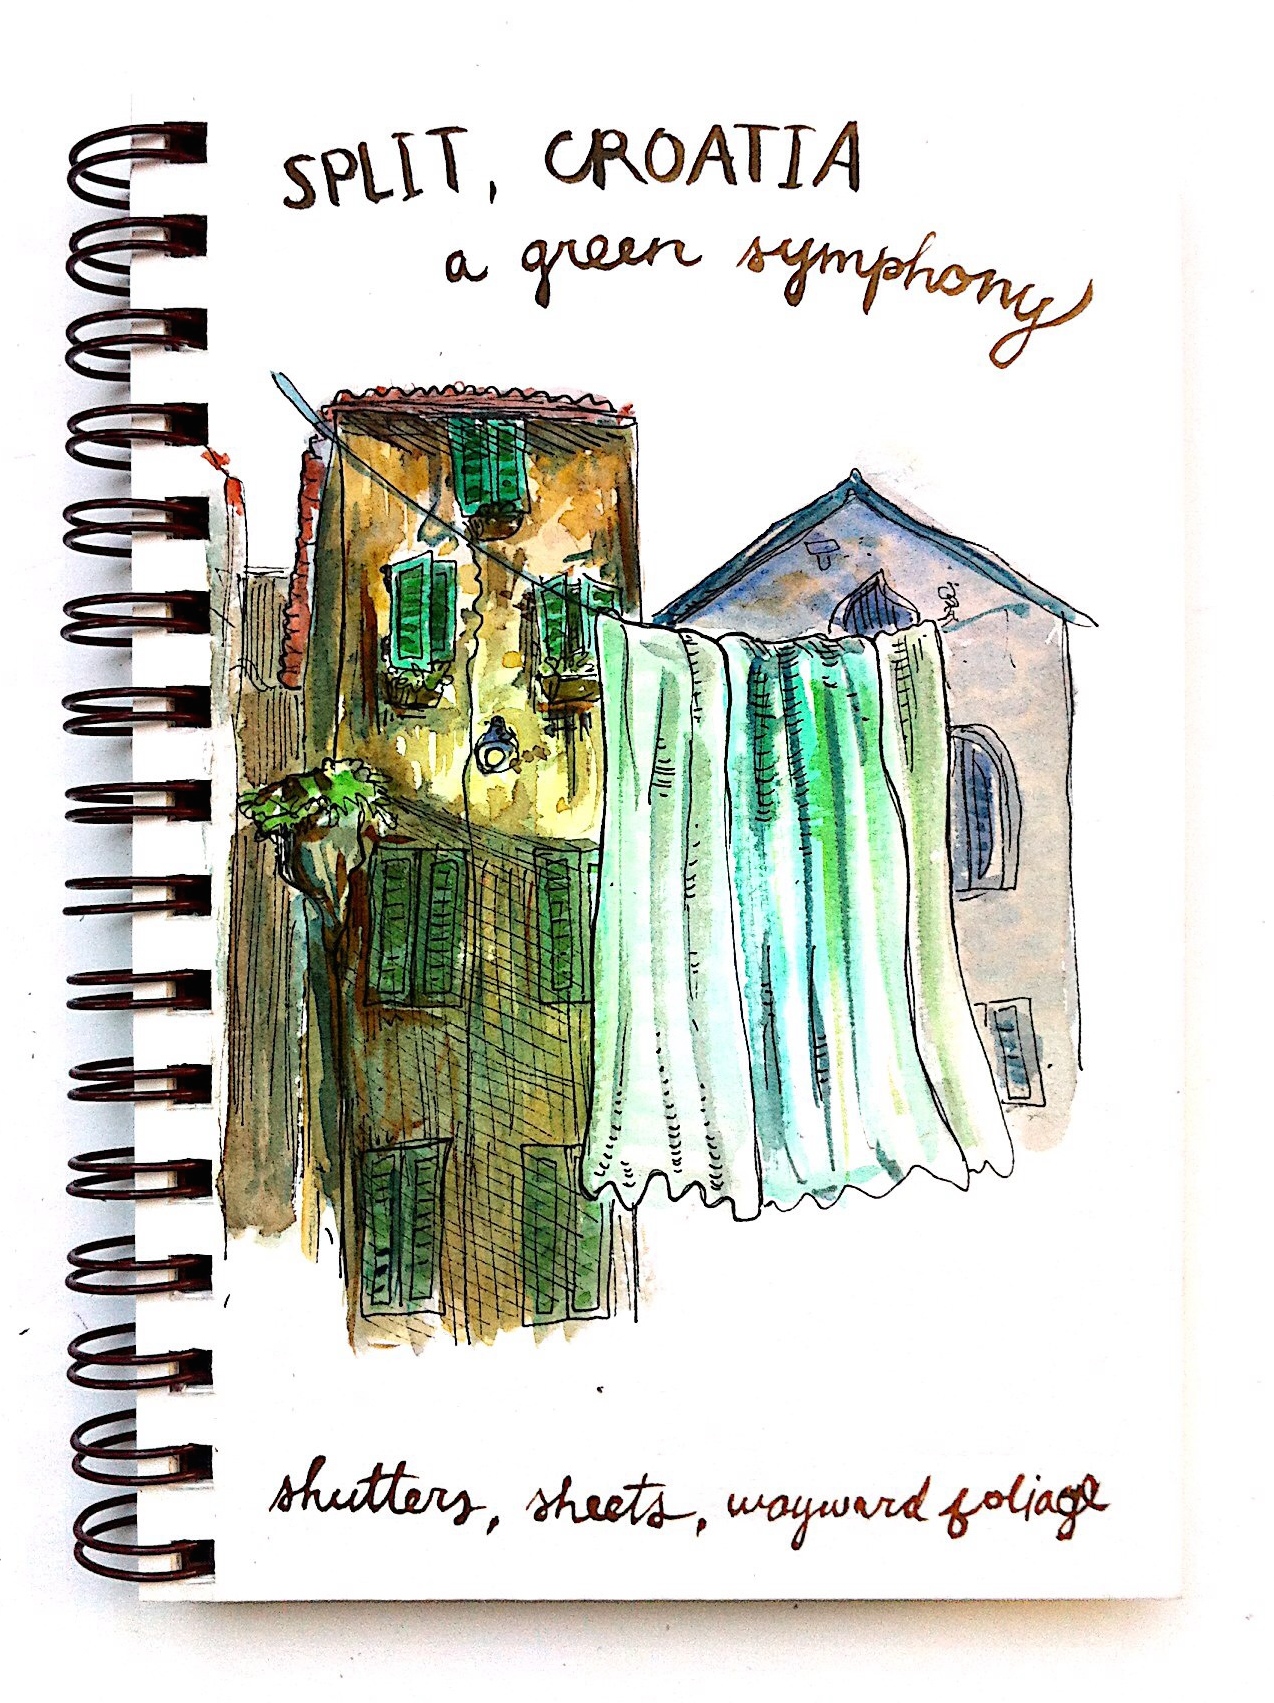 SPLIT, CROATIA
a green symphony
shutters, sheets, wayward foliage